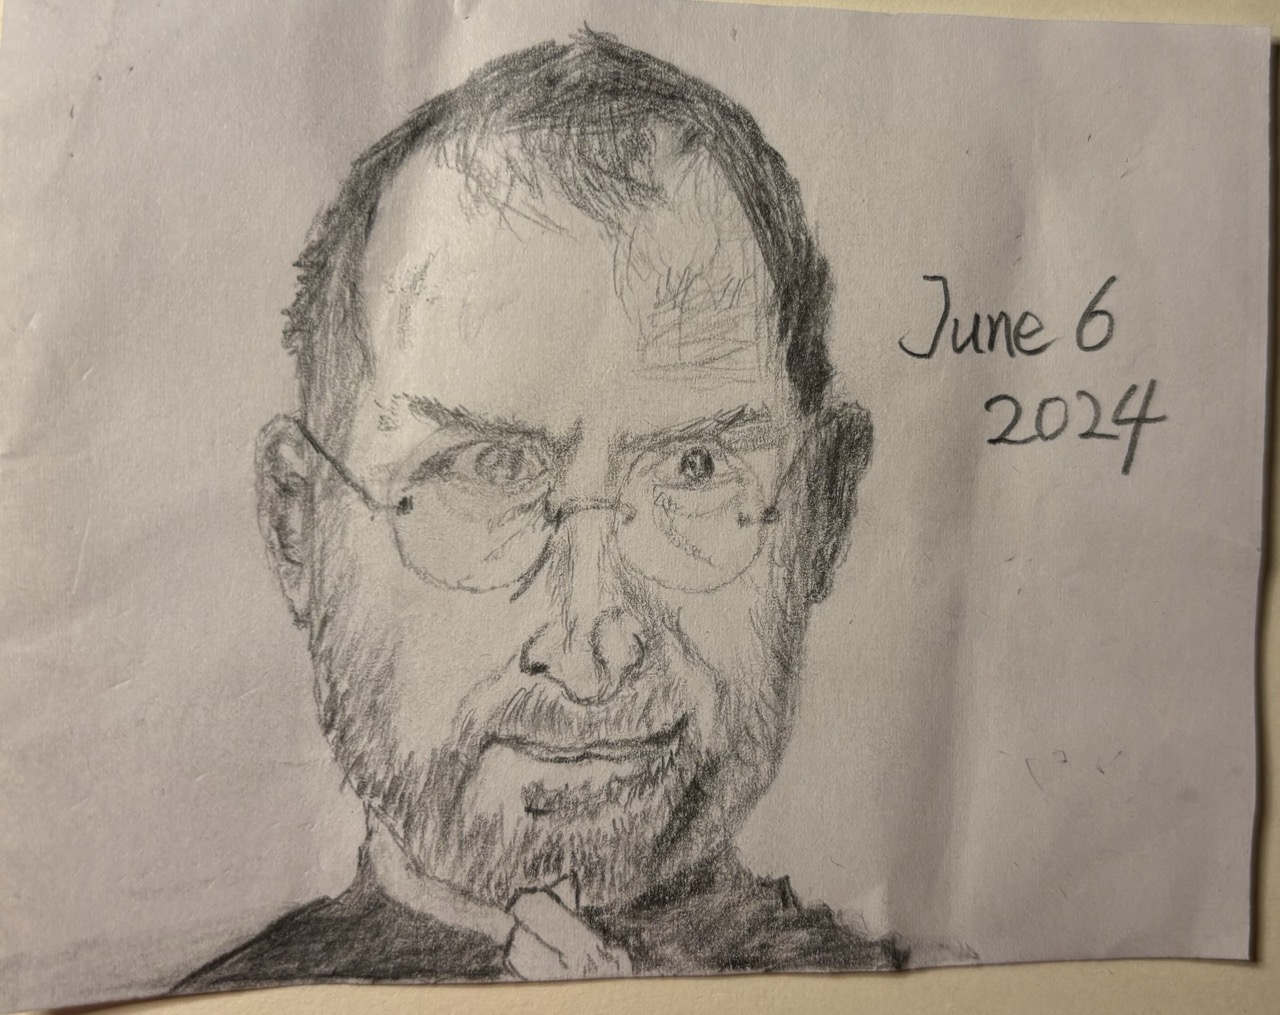 June 6
2024